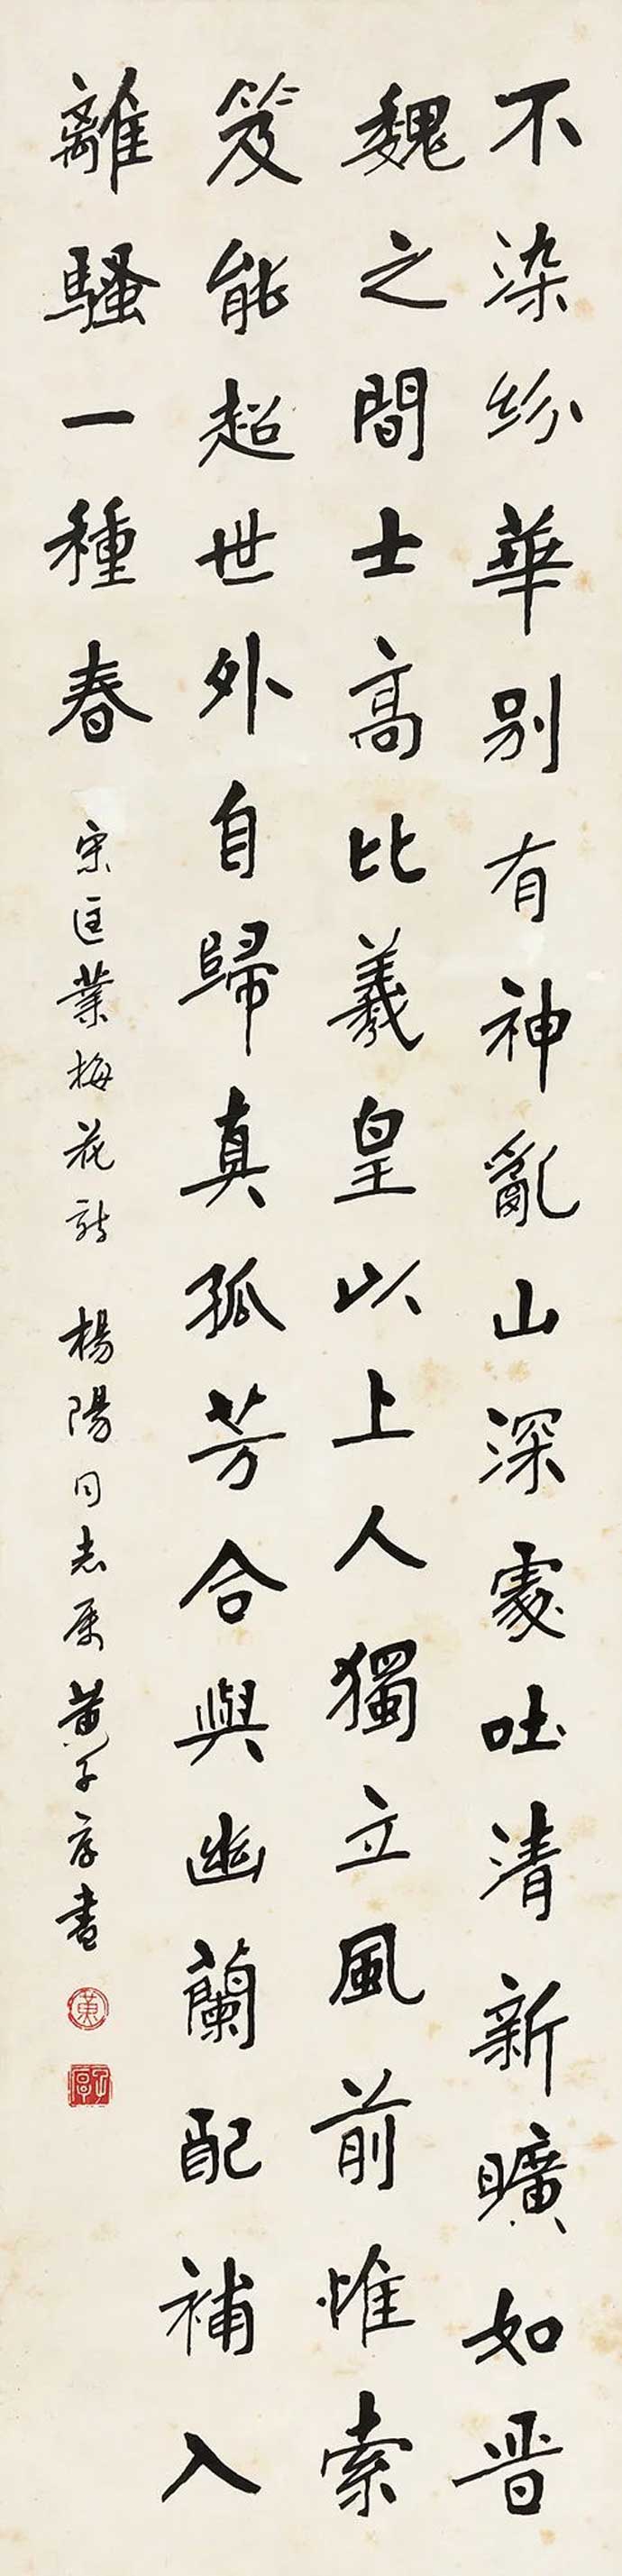 不染紛華別有神亂山深處吐清新曠如晋
魏之間士高比羲皇以上人獨立風前惟索
笑能超世外自歸真孤芳合與幽蘭配補入
離騷一種春
宋匡業梅花詩 楊陽同志屬 黃子厚書
黃